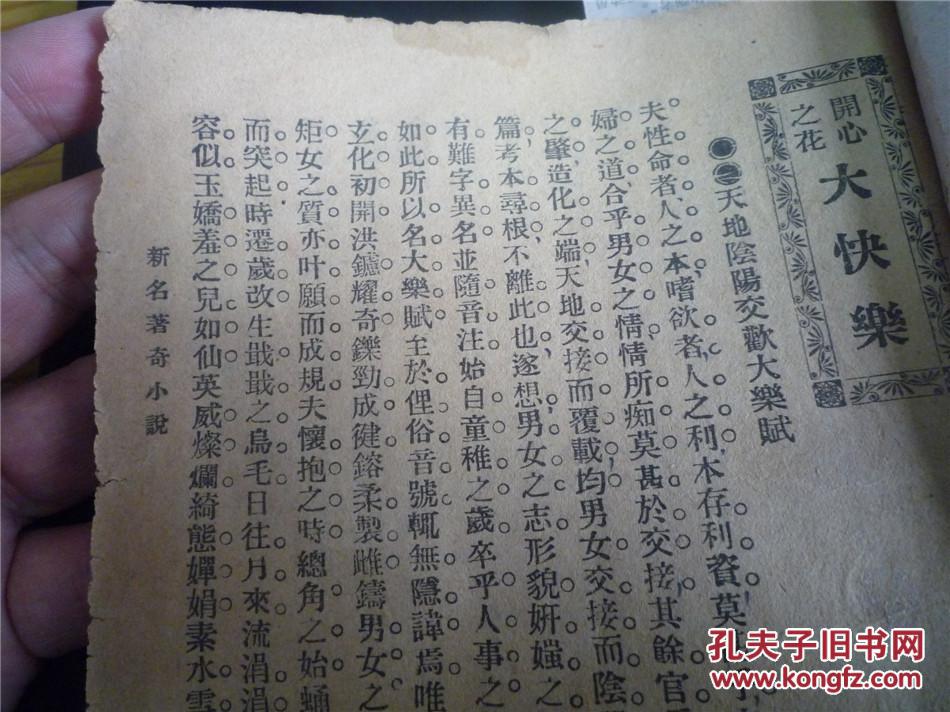 開心
之花
大快樂
●●天地陰陽交歡大樂賦
夫性命者、人之本、嗜欲者、人之利、本存利資、莫
婦之道、合乎男女之情、情所痴莫甚於交接、其餘官
之肇、造化之端、天地交接而覆載均、男女交接而陰
篇、考本尋根、不離此也、遂想男女之志、形貌妍媸之
有難字異名、並隨音注、始自童稚之歲、卒乎人事之
如此、所以名大樂賦、至於俚俗音號、輒無隱諱焉、唯
玄化初開、洪鑪耀奇、鑠勁成健、鎔柔製雌、鑄男女之
矩、女之質亦叶願而成規、夫懷抱之時、總角之始、蛹
而突起、時遷歲改、生戢戢之烏毛、日往月來、流涓涓
容似玉、嬌羞之兒如仙、英威燦爛、綺態嬋娟、素水雪
新名著奇小說
孔夫子旧书网
www.kongfz.com